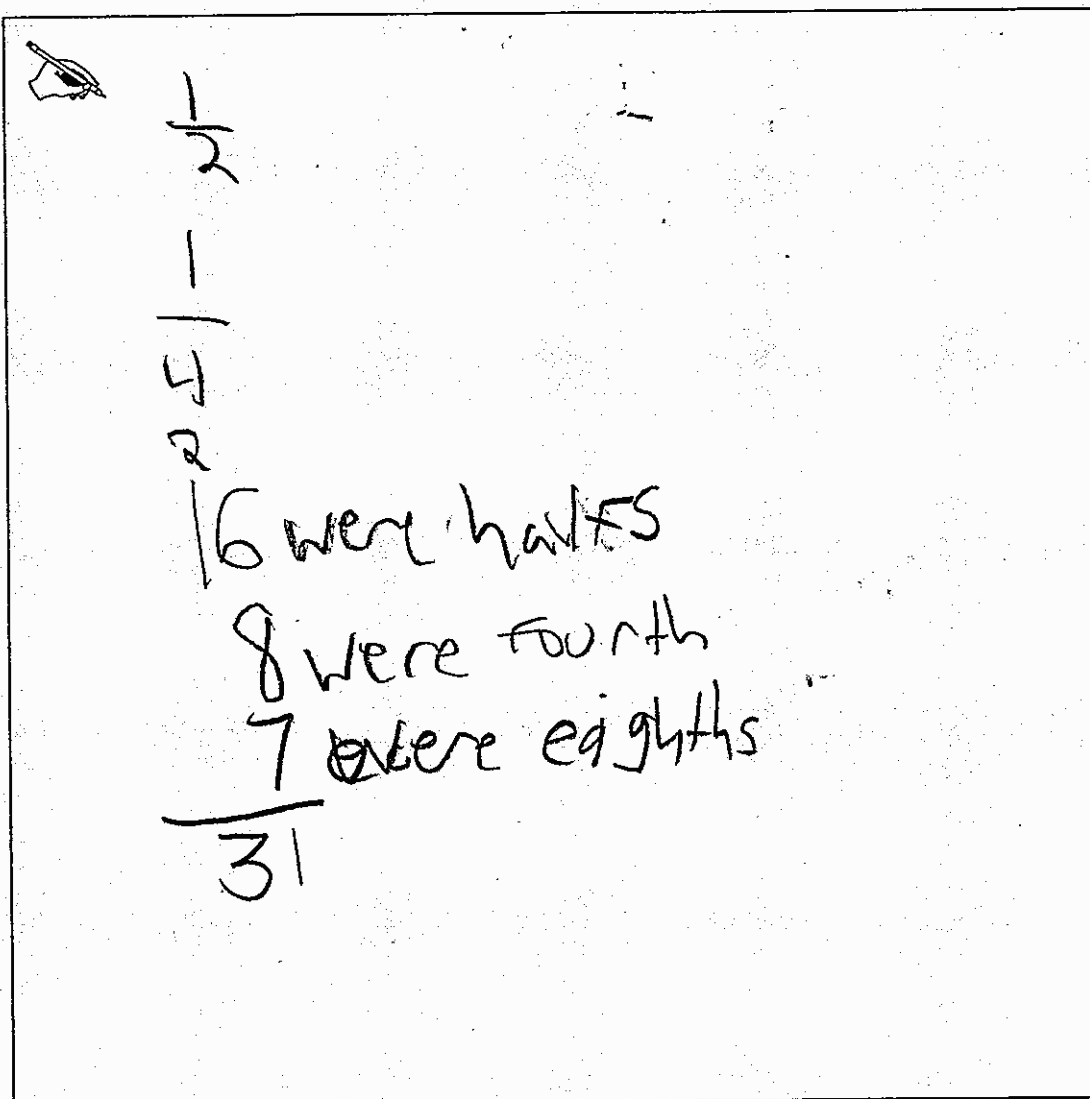 1
2
1
4
2
16 were halfs
8 were fourth
7 were eighths
31